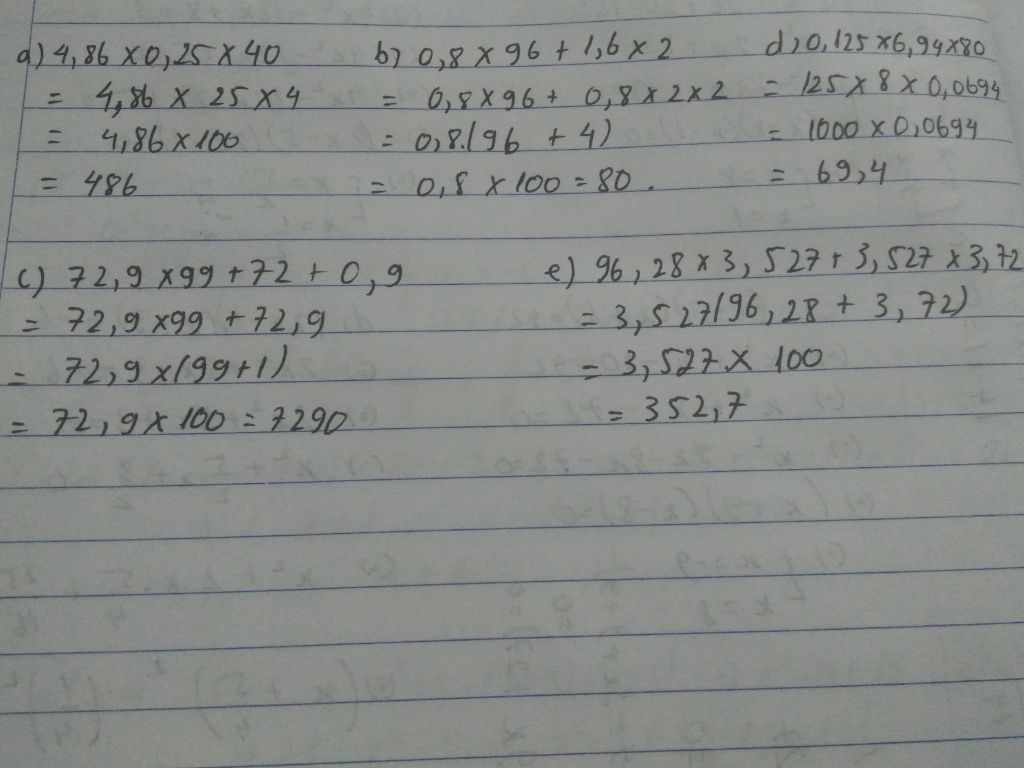 a) 4,86 x 0,25 x 40
= 4,86 x 25 x 4
= 4,86 x 100
= 486
b) 0,8 x 96 + 1,6 x 2
= 0,8 x 96 + 0,8 x 2 x 2
= 0,8.(96 + 4)
= 0,8 x 100 = 80.
d) 0,125 x 6,94 x 80
= 125 x 8 x 0,0694
= 1000 x 0,0694
= 69,4
c) 72,9 x 99 + 72 + 0,9
= 72,9 x 99 + 72,9
= 72,9 x (99+1)
= 72,9 x 100 = 7290
e) 96,28 x 3,527 + 3,527 x 3,72
= 3,527(96,28 + 3,72)
= 3,527 x 100
= 352,7